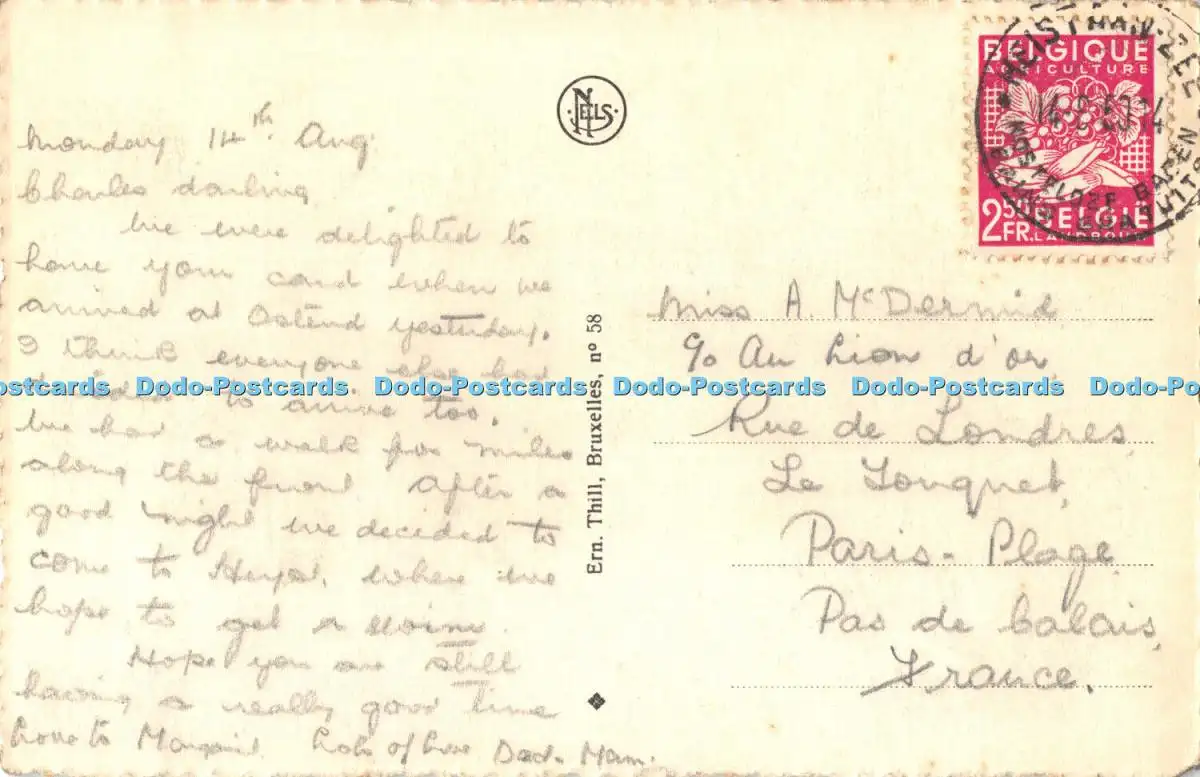 Monday 14th Aug.
Charles darling
We were delighted to
have your card when we
arrived at Ostend yesterday.
I think everyone else had
decided to arrive too.
We had a walk for miles
along the front After a
good night we decided to
come to where we
hope to get a swim.
Hope you are still
having a really good time
Love to Lots of love Dad & Mam.
NELS
Ern. Thill, Bruxelles, nº 58
BELGIQUE
AGRICULTURE
2.50 FR.
BELGIE
LANDBOUW
HEIST AAN-ZEE
14-8-50
Miss A. McDermid
c/o Au Lion d'or
Rue de Londres
Le Touquet
Paris-Plage
Pas de Calais,
France.
Dodo-Postcards Dodo-Postcards Dodo-Postcards Dodo-Postcards Dodo-Postcards